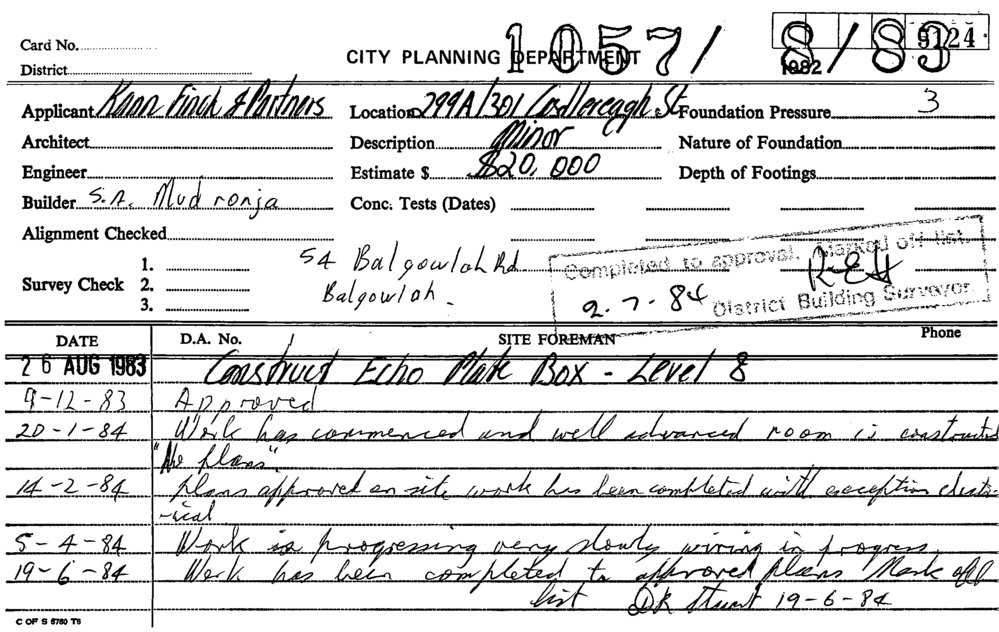 Card No.
CITY PLANNING DEPARTMENT
1057/8/83
9124
1982
District
Applicant Kann Finch & Partners
Location 299A/301 Castlereagh St
Foundation Pressure 3
Architect
Description Minor
Nature of Foundation
Engineer
Estimate $ $20,000
Depth of Footings
Builder S.A. Mudronja
Conc. Tests (Dates)
Alignment Checked
54 Balgowlah Rd
Balgowlah.
Completed to approval. Marked off list.
2-7-84
District Building Surveyor.
Survey Check
1.
2.
3.
DATE D.A. No. SITE FOREMAN Phone
26 AUG 1983 Construct Echo Plate Box - Level 8
9-12-83 Approved
20-1-84 Work has commenced and well advanced room is constructed
"No plans".
14-2-84 Plans approved on site work has been completed with exception electr-
-ical
5-4-84 Work is progressing very slowly wiring in progress
19-6-84 Work has been completed to approved plans Mark off
list DR Stuart 19-6-84
C OF S 6760 T6